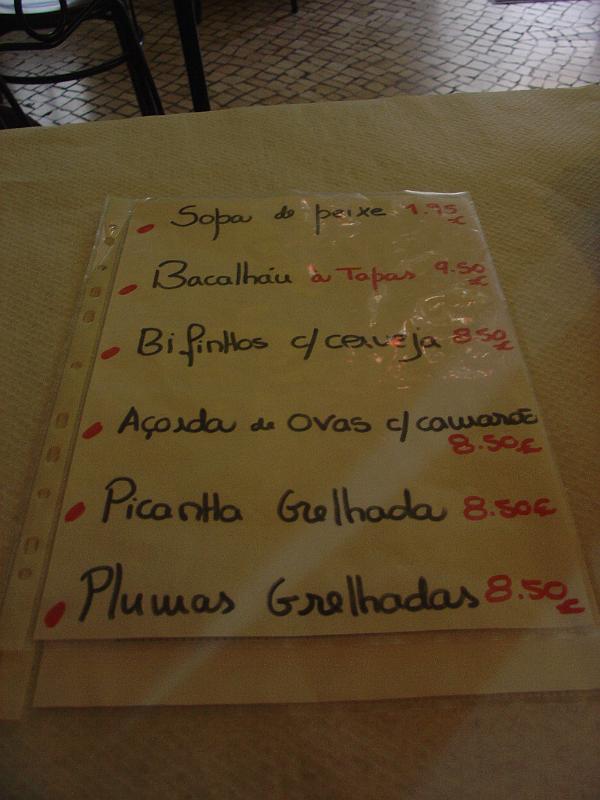 Sopa de peixe 1.95€
Bacalháu à Tapas 9.50€
Bifinhos c/cerveja 8.50€
Açorda de ovas c/camarão
8.50€
Picanha Grelhada 8.50€
Plumas Grelhadas 8.50€